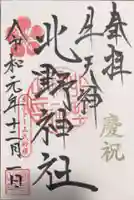 奉拝
慶祝
牛天神
北野神社
令和元年十二月一日